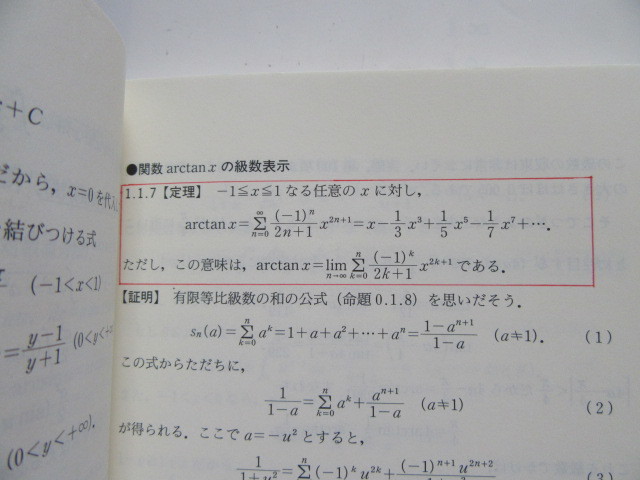 +C
だから，x=0を代入
結びつける式
(-1<x<1)
=\frac{y-1}{y+1} (0<y<+
(0<y<+∞).
●関数 arctan x の級数表示
1.1.7【定理】 -1≦x≦1 なる任意の x に対し，
arctan x=\sum_{n=0}^{∞}\frac{(-1)^n}{2n+1}x^{2n+1}=x-\frac{1}{3}x^3+\frac{1}{5}x^5-\frac{1}{7}x^7+⋯.
ただし，この意味は，arctan x=\lim_{n→∞}\sum_{k=0}^{n}\frac{(-1)^k}{2k+1}x^{2k+1}である.
【証明】 有限等比級数の和の公式（命題0.1.8）を思いだそう.
s_n(a)=\sum_{k=0}^{n}a^k=1+a+a^2+⋯+a^n=\frac{1-a^{n+1}}{1-a} (a≠1). (1)
この式からただちに，
\frac{1}{1-a}=\sum_{k=0}^{n}a^k+\frac{a^{n+1}}{1-a} (a≠1) (2)
が得られる．ここで a=-u^2 とすると，
\frac{1}{1+u^2}=\sum^{n}(-1)^k u^{2k}+\frac{(-1)^{n+1}u^{2n+2}}{1+u^2} (3)